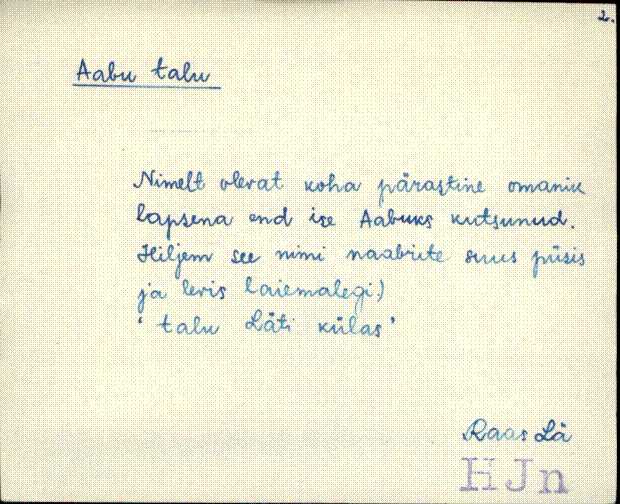 2.
Aabu talu
Nimelt olevat koha pärastine omanik
lapsena end ise Aabuks kutsunud.
Hiljem see nimi naabrite suus püsis
ja levis laiemalegi)
‘talu Läti külas’
Raas Lä
HJn